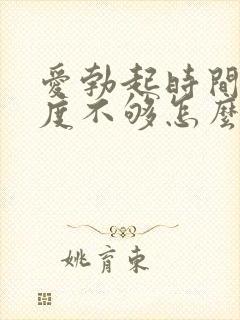 愛勃起時間
度不够怎麼
姚育東